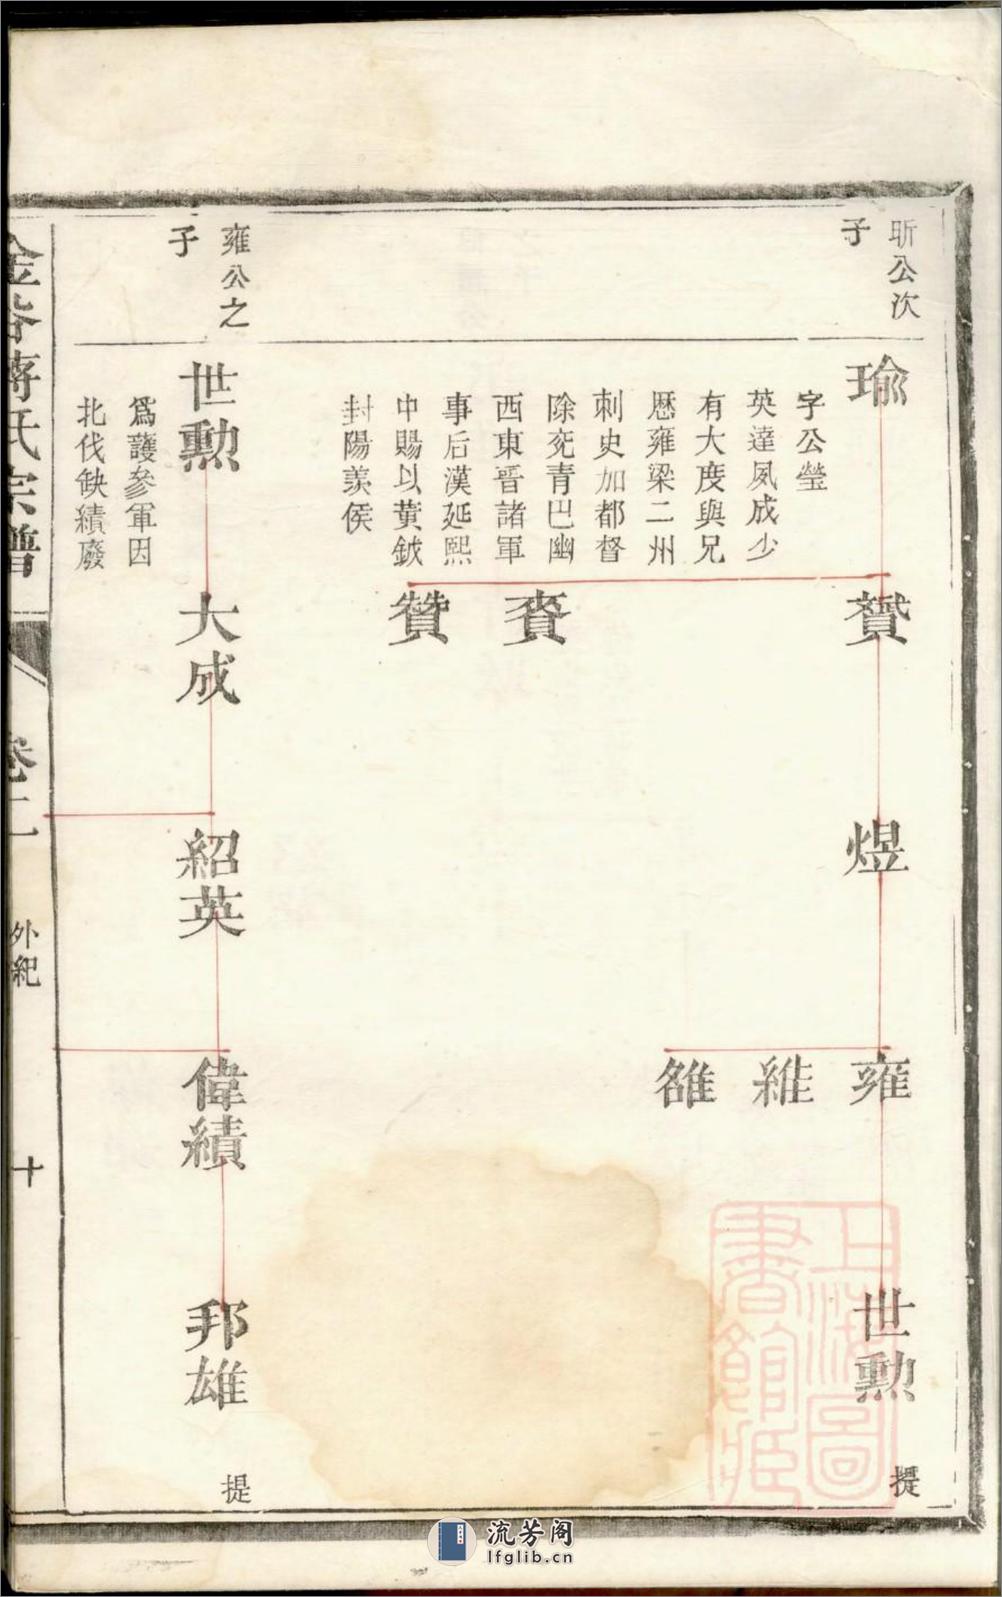 昕公次
子
瑜
字公瑩
英達夙成少
有大度與兄
歷雍梁二州
刺史加都督
除兖青巴幽
西東晉諸軍
事后漢延熙
中賜以黃鉞
封陽羨侯
贇
贊
煜
雍
維
雒
世勲
提
雍公之
子
世勲
爲護參軍因
北伐缺績廢
大成
紹英
偉績
邦雄
提
金谷蔣氏宗譜
卷二
外紀
十
上海圖
書館藏
流芳阁
lfglib.cn